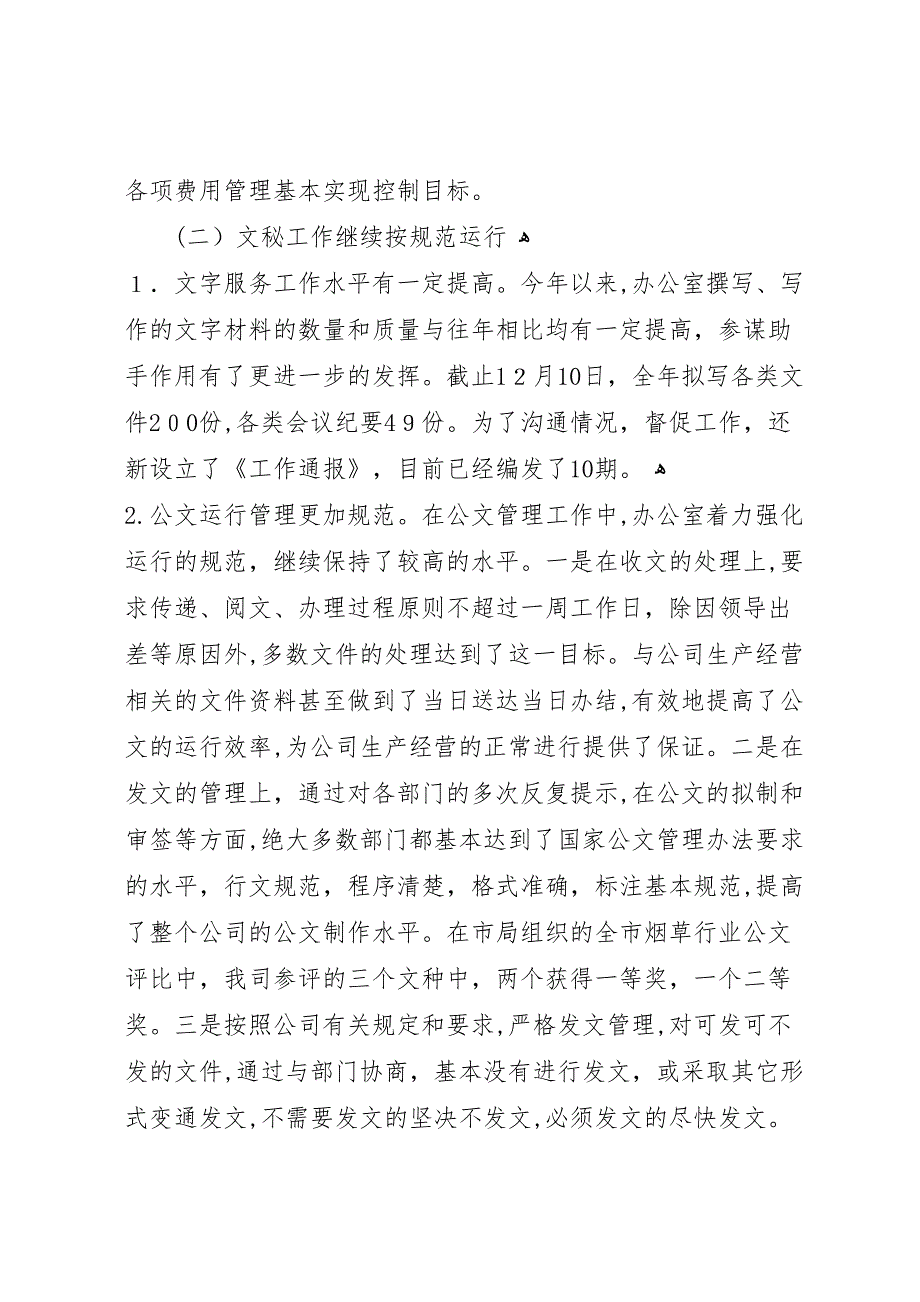 各项费用管理基本实现控制目标。
(二）文秘工作继续按规范运行 ﻫ
１．文字服务工作水平有一定提高。今年以来,办公室撰写、写
作的文字材料的数量和质量与往年相比均有一定提高，参谋助
手作用有了更进一步的发挥。截止1２月10日，全年拟写各类文
件2００份,各类会议纪要4９份。为了沟通情况，督促工作，还
新设立了《工作通报》，目前已经编发了10期。 ﻫ
2.公文运行管理更加规范。在公文管理工作中,办公室着力强化
运行的规范，继续保持了较高的水平。一是在收文的处理上,要
求传递、阅文、办理过程原则不超过一周工作日，除因领导出
差等原因外,多数文件的处理达到了这一目标。与公司生产经营
相关的文件资料甚至做到了当日送达当日办结,有效地提高了公
文的运行效率,为公司生产经营的正常进行提供了保证。二是在
发文的管理上，通过对各部门的多次反复提示,在公文的拟制和
审签等方面,绝大多数部门都基本达到了国家公文管理办法要求
的水平，行文规范，程序清楚，格式准确，标注基本规范,提高
了整个公司的公文制作水平。在市局组织的全市烟草行业公文
评比中，我司参评的三个文种中，两个获得一等奖，一个二等
奖。三是按照公司有关规定和要求,严格发文管理,对可发可不
发的文件,通过与部门协商，基本没有进行发文，或采取其它形
式变通发文,不需要发文的坚决不发文,必须发文的尽快发文。